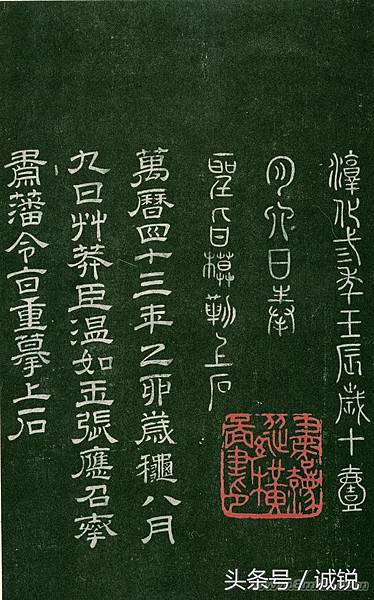 淳化弎年壬辰歲十壹
月六日奉
聖旨模勒上石
萬曆四十三年乙卯歲穐八月
九日艸莽臣温如玉張應召奉
肅藩令旨重摹上石
头条号 / 诚锐